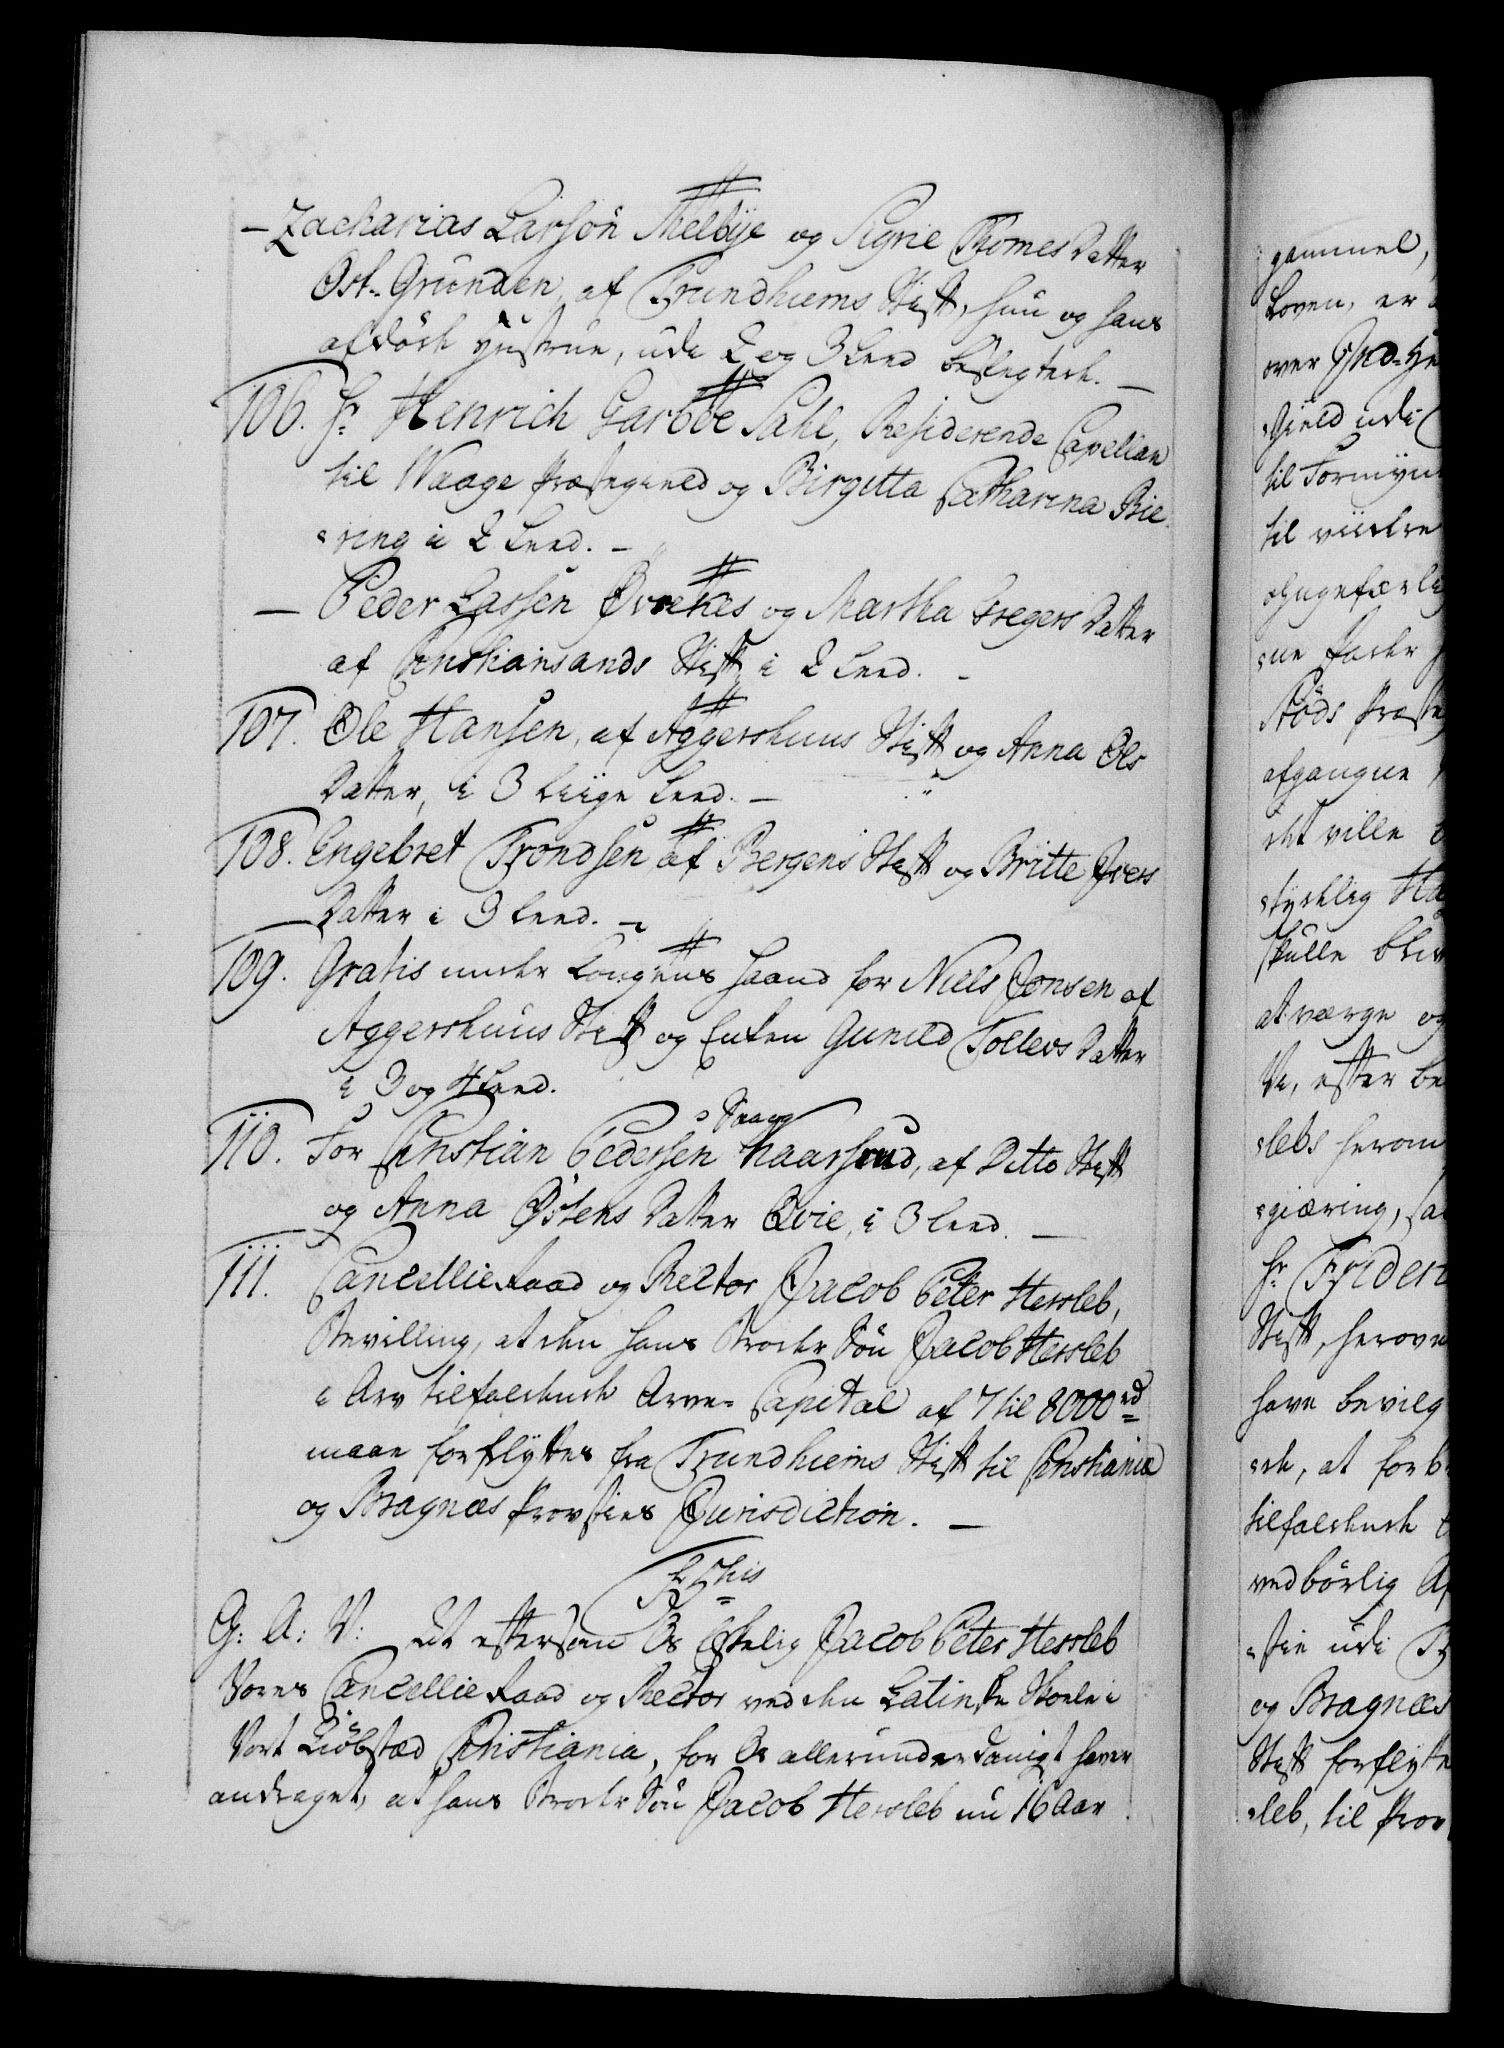 – Zacharias Larsøn Melbye og Sigrie Thomes Datter
Øst-Grunden, af Trundhiems Stift, hun og hans
afdøde Hustrue, udi 2 og 3 Leed beslegtede. –
106. Hr. Henrich Garboe Sahl, Residerende Capellan
til Waage Præstegield og Birgitta Catharina Bie-
-ring i 2 Leed. –
– Peder Lassen Øvrekes og Martha Gregers Datter
af Christiansands Stift i 2 Leed. –
107. Ole Hansen, af Aggershuus Stift og Anna Ols
Datter, i 3 liige Leed. –
108. Engebret Trondsen af Bergens Stift og Britte Ivers
Datter i 3 Leed. –
109. Gratis under Kongens Haand for Niels Jonsen af
Aggershuus Stift og Enken Gunild Tollevs Datter
i 3 og 4 Leed.
110. For Christian Pedersen Kaarsrud, af Ditto Stift
og Anna Østens Datter Qvie, i 3 Leed. –
111. Cancellie Raad og Rector Jacob Peter Hersleb,
Bevilling, at den hans Broder Søn Jacob Hersleb
i Arv tilfaldende Arve-Capital af 7 til 8000 rd
maae forflyttes fra Trundhiems Stift til Christiania
og Bragnæs Provsties Jurisdiction. –
G: A: V: At eftersom Os Elskelig Jacob Peter Hersleb
Vores Cancellie Raad og Rector ved den Latinske Skoele i
Vort Kiøbstæd Christiania, for Os allerunderdanigst haver
andraget, at hans Broder Søn Jacob Hersleb nu 16 Aar
gammel,
Loven, er
over Ind-
-gield udi
til Formyn
til viidere
ohngefærli
-ne Fader
Støds Præste
afgangne
det ville
-tydelig
skulle bliv
at værge og
Vi, efter be
-lebs herom
-giæring, sa
Hr. Frideri
Stift, herove
have bevilg
-de, at forb
tilfaldende
vedbørlig
-stie udi
og Bragnæs
Stift forflytte
-leb, til Prov